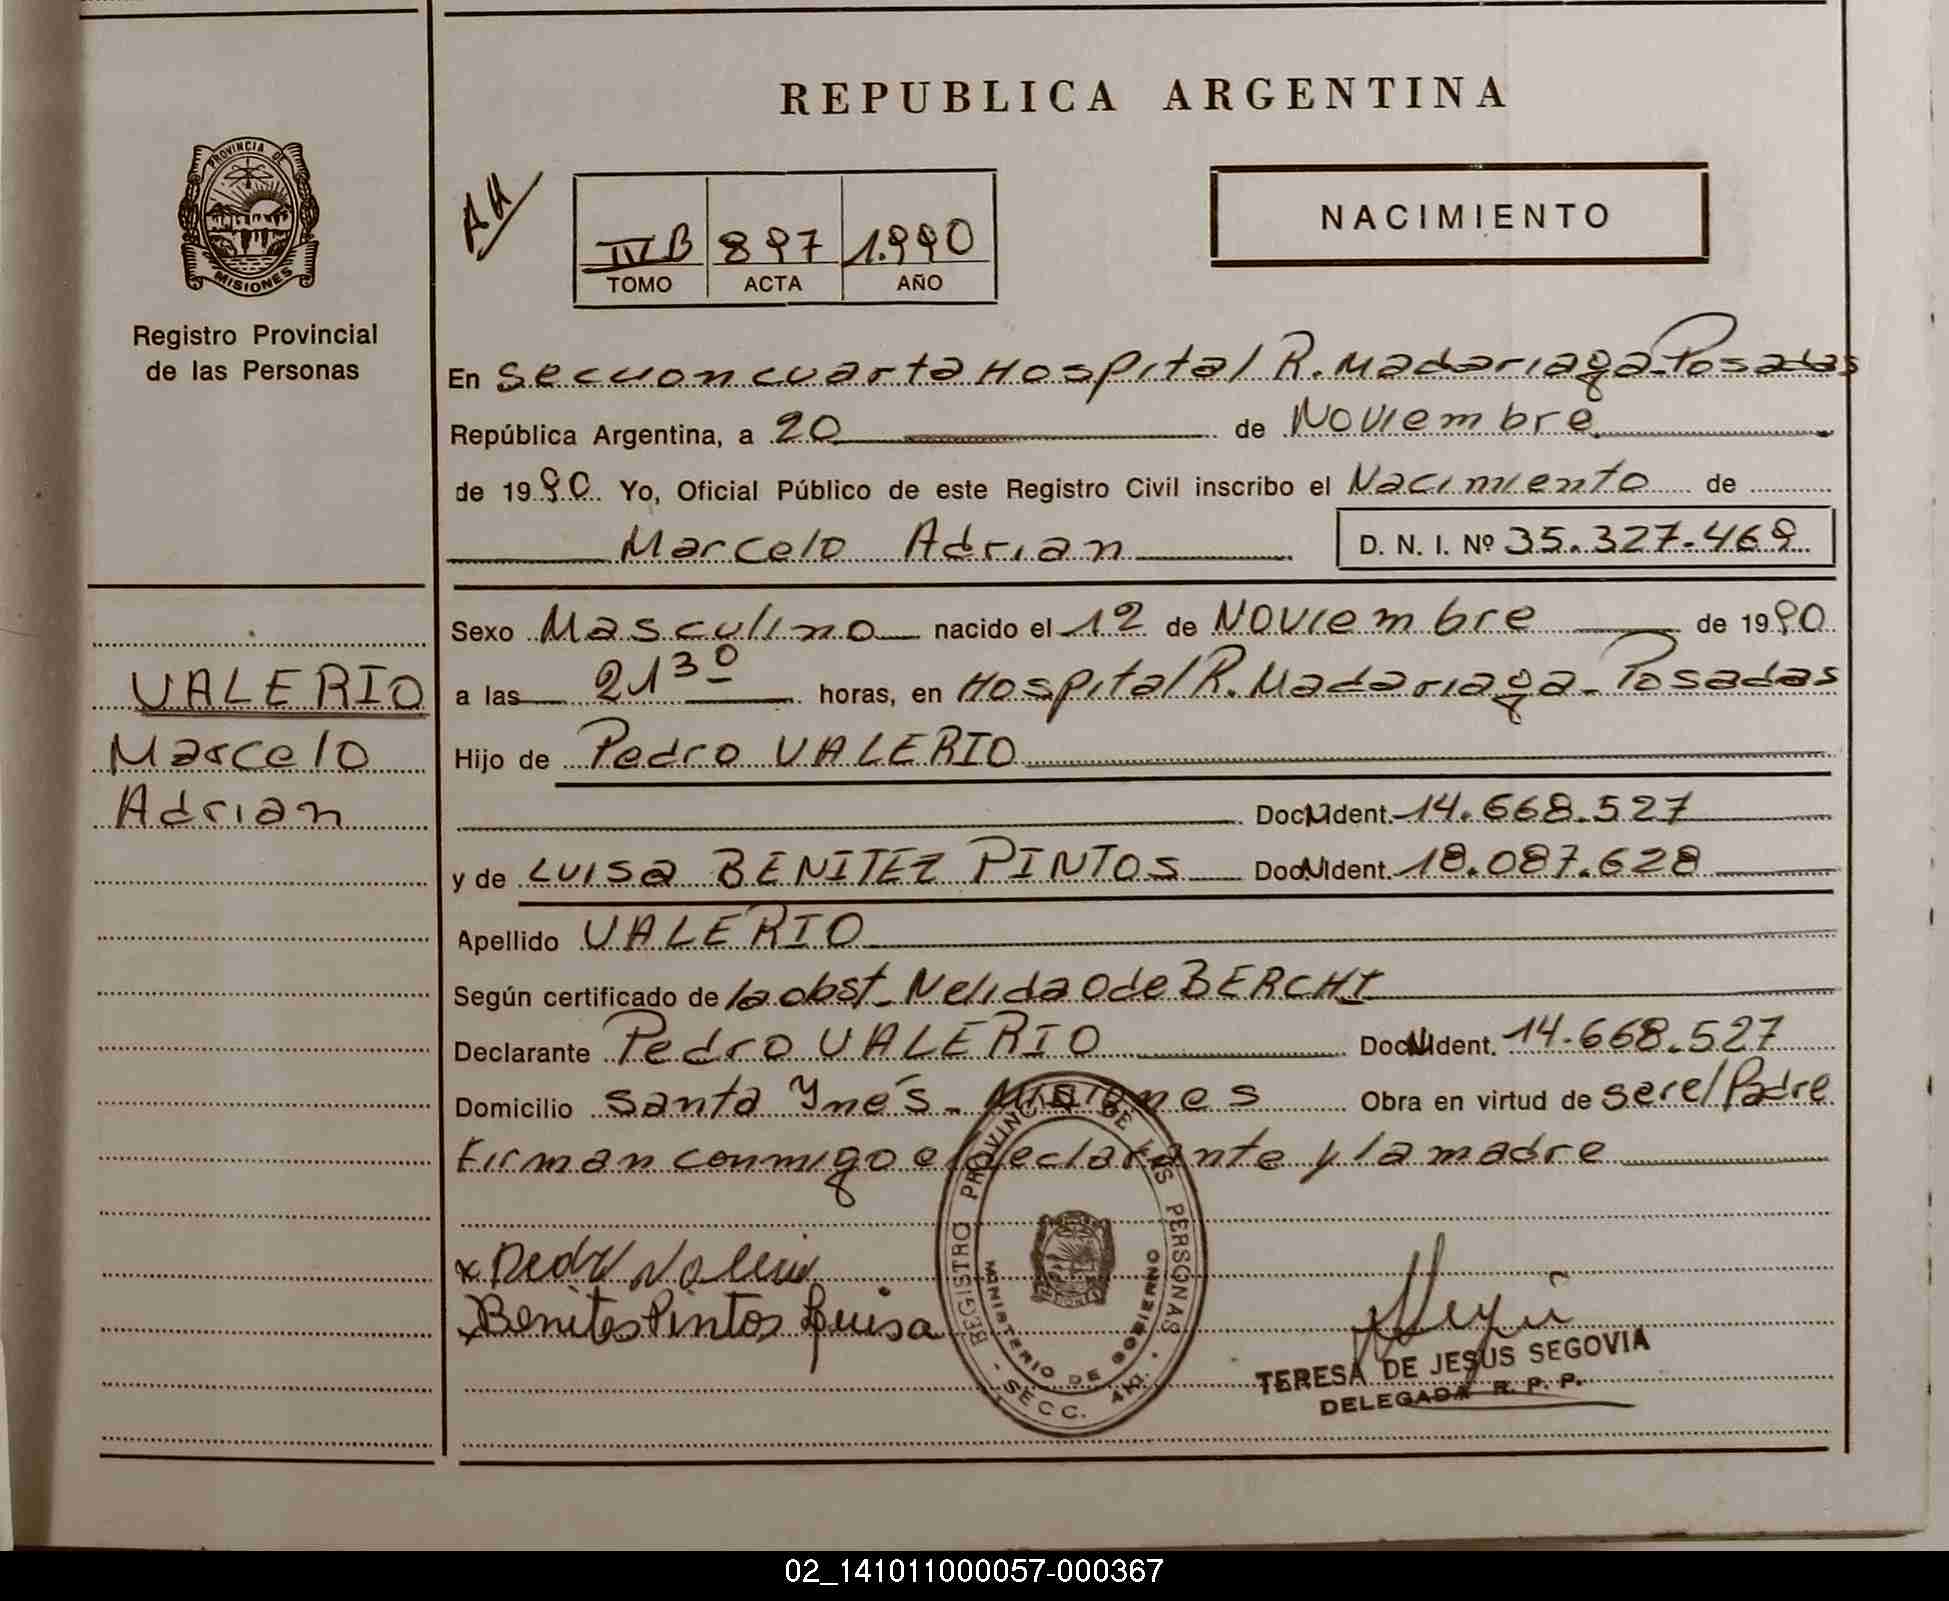 REPUBLICA ARGENTINA
PROVINCIA DE
MISIONES
Registro Provincial
de las Personas
IV B 897 1.990
TOMO ACTA AÑO
NACIMIENTO
En Seccion cuarta Hospital R. Madariaga - Posadas
República Argentina, a 20 de Noviembre
de 1990. Yo, Oficial Público de este Registro Civil inscribo el Nacimiento de
Marcelo Adrian D. N. I. Nº 35.327.469
Sexo Masculino nacido el 12 de Noviembre de 1990
a las 21 30 horas, en Hospital R. Madariaga - Posadas
Hijo de Pedro VALERIO
Doc. Ident. 14.668.527
y de Luisa BENITEZ PINTOS Doc. Ident. 18.087.628
Apellido VALERIO
Según certificado de la obst. Nelida O de BERCHI
Declarante Pedro VALERIO Doc. Ident. 14.668.527
Domicilio Santa Ynés - Misiones Obra en virtud de ser el Padre
Firman conmigo el declarante y la madre
VALERIO
Marcelo
Adrian
x Pedro Valerio
x Benites Pintos Luisa
REGISTRO PROVINCIAL DE LAS PERSONAS
MINISTERIO DE GOBIERNO
- SECC. 4ta. -
TERESA DE JESUS SEGOVIA
DELEGADA R. P. P.
02_141011000057-000367